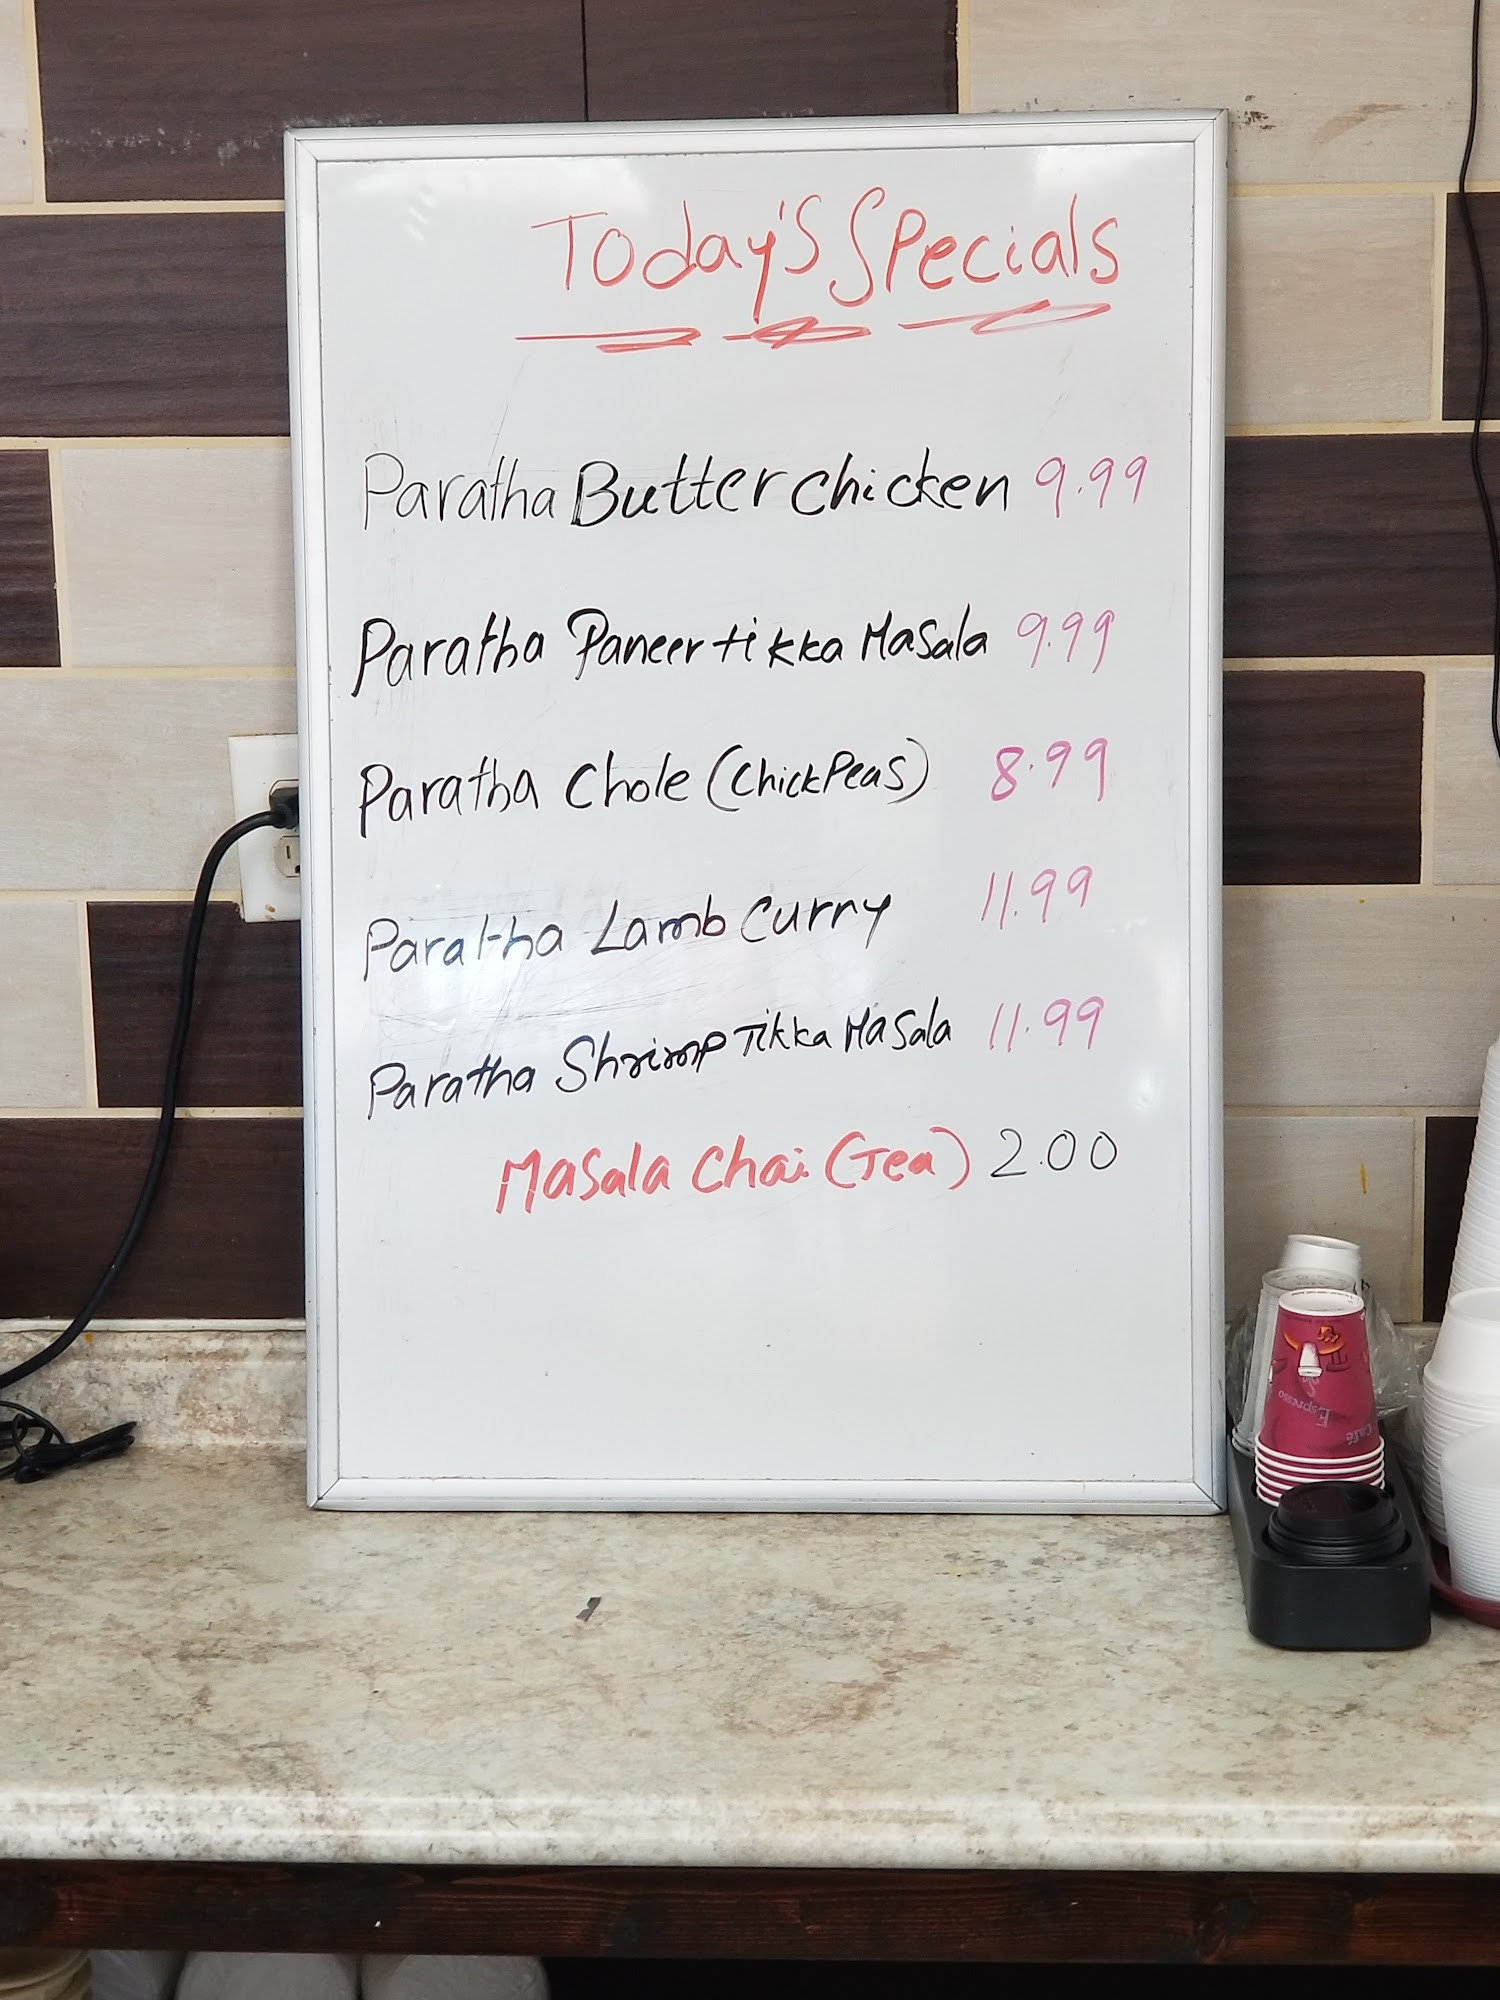 Today's Specials
Paratha Butter chicken 9.99
Paratha Paneer tikka Masala 9.99
Paratha Chole (ChickPeas) 8.99
Paratha Lamb Curry 11.99
Paratha Shrimp Tikka Masala 11.99
Masala Chai (Tea) 2.00
Espresso
Café